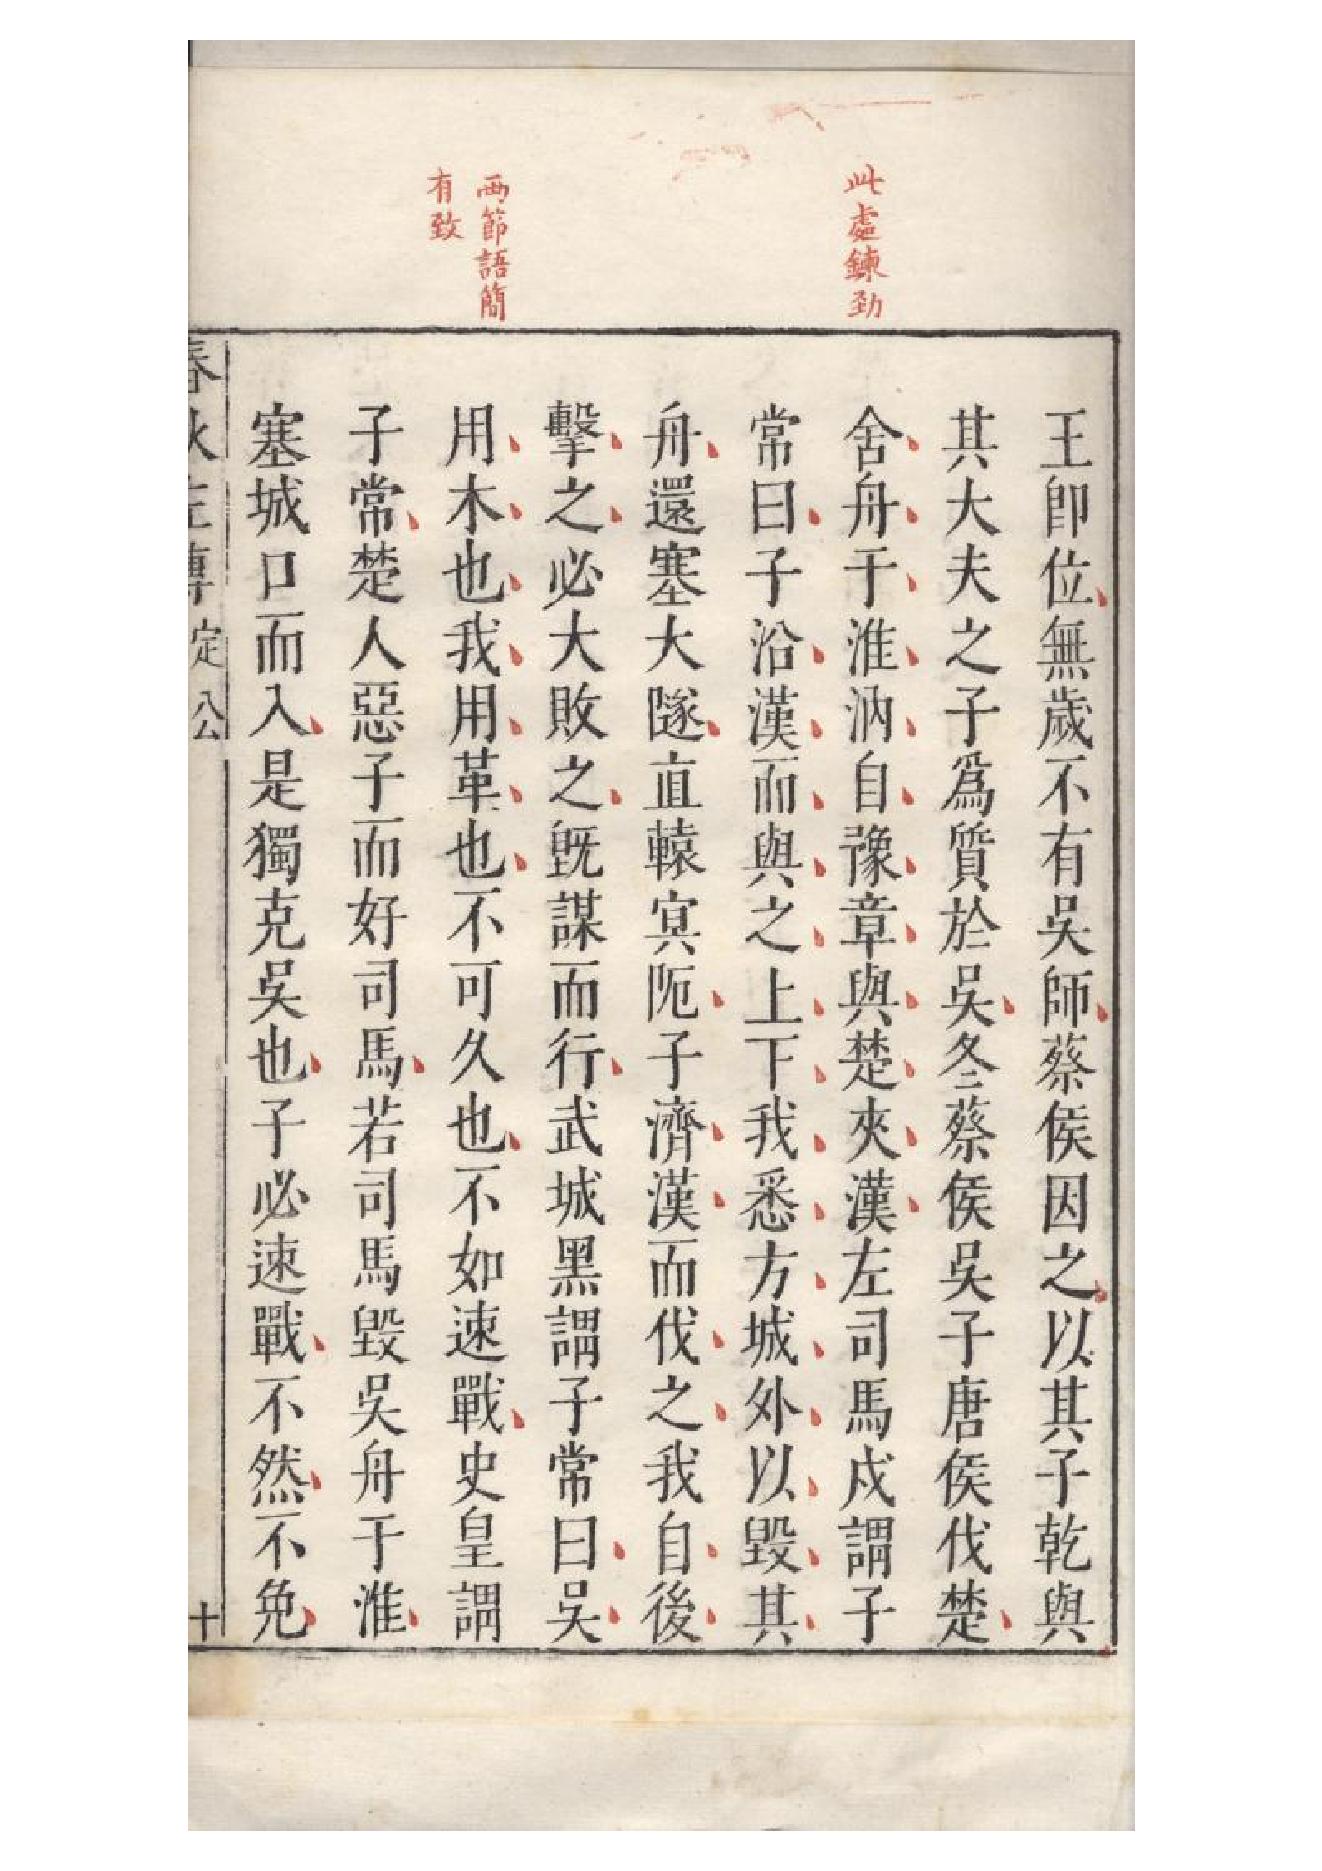 此處鍊勁
兩節語簡
有致
王卽位無歲不有吳師蔡侯因之以其子乾與
其大夫之子爲質於吳冬蔡侯吳子唐侯伐楚
舍舟于淮汭自豫章與楚夾漢左司馬戍謂子
常曰子沿漢而與之上下我悉方城外以毀其
舟還塞大隧直轅冥阨子濟漢而伐之我自後
擊之必大敗之旣謀而行武城黑謂子常曰吳
用木也我用革也不可久也不如速戰史皇謂
子常楚人惡子而好司馬若司馬毀吳舟于淮
塞城口而入是獨克吳也子必速戰不然不免
春秋左傳 定公 十